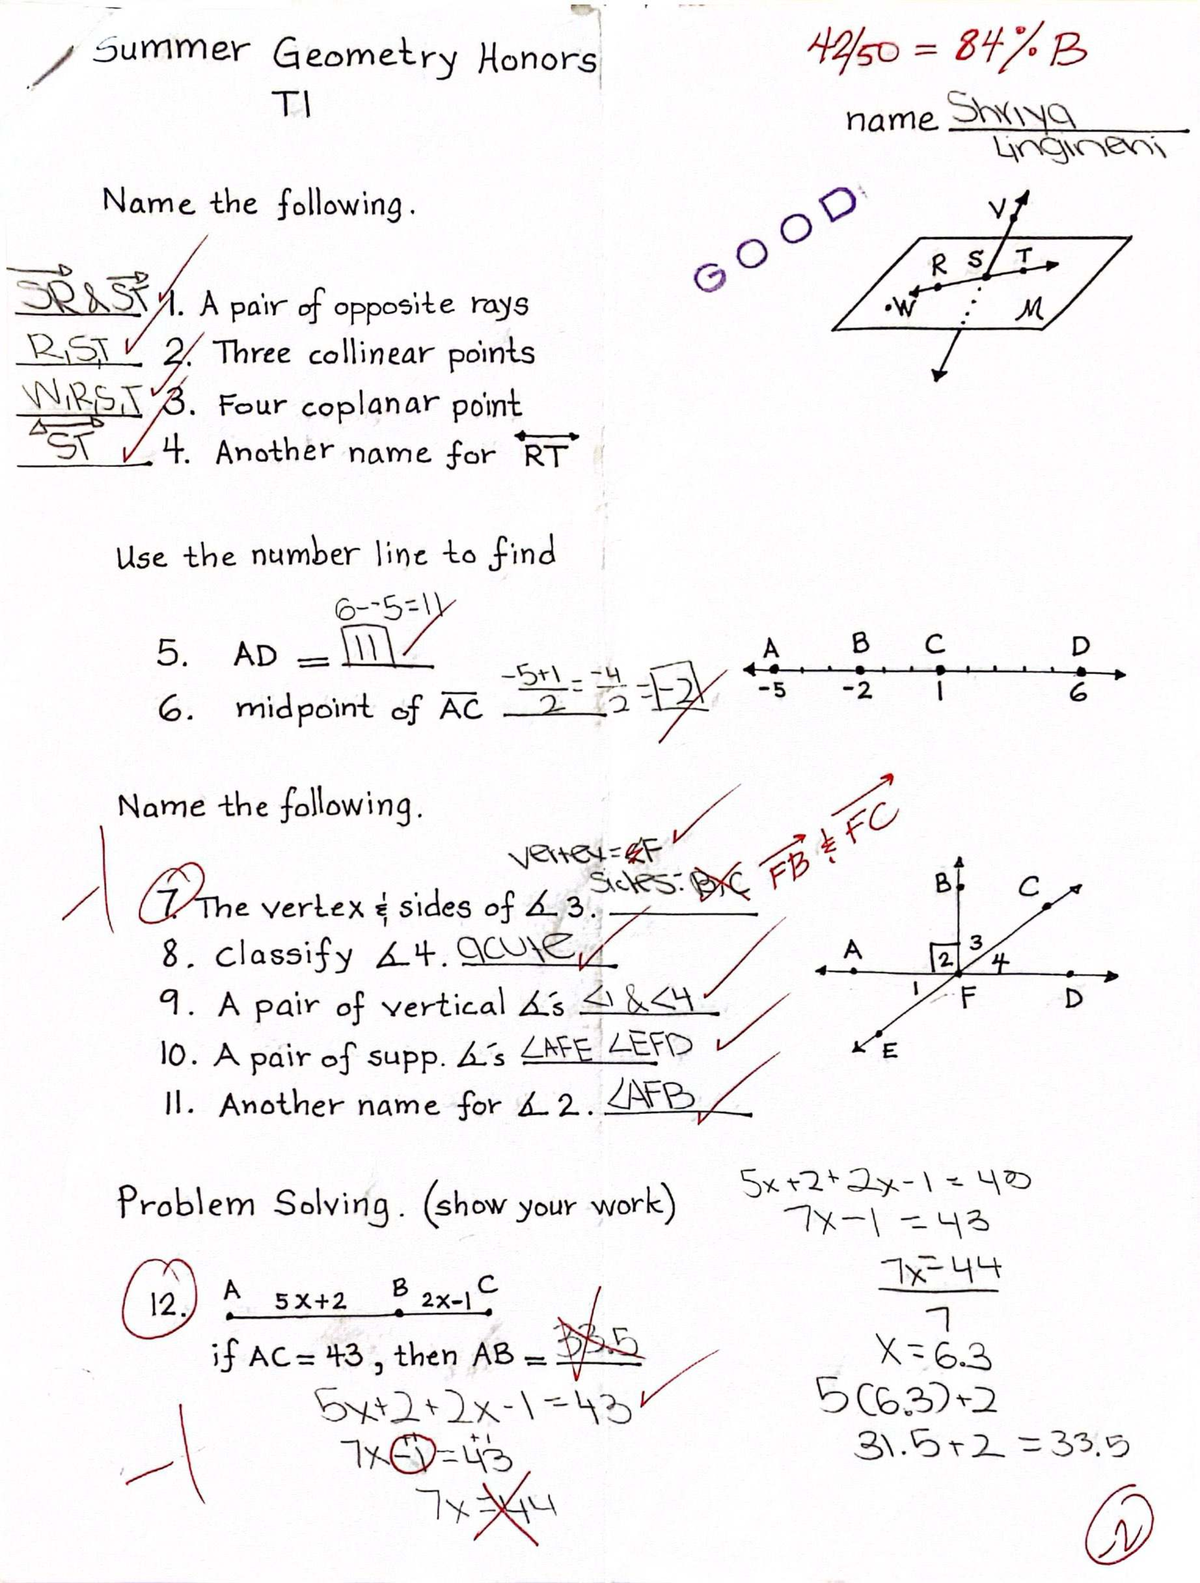 Summer Geometry Honors
T1
42/50 = 84% B
name Shriya
Lingineni
Name the following.
GOOD
SR & ST 1. A pair of opposite rays
R,S,T 2. Three collinear points
W,R,S,T 3. Four coplanar point
ST 4. Another name for RT
V
R S T
.W M
Use the number line to find
6--5=11
5. AD = 11
6. midpoint of AC -5+1/2 = -4/2 = -2
A B C D
-5 -2 1 6
Name the following.
vertex = F
sides: B,C FB & FC
7. The vertex & sides of ∡3.
8. Classify ∡4. acute
9. A pair of vertical ∡'s <1 & <4
10. A pair of supp. ∡'s ∠AFE ∠EFD
11. Another name for ∡2. ∠AFB
B C
A 2 3 4
1 F D
E
-1
Problem Solving. (show your work)
12. A 5x+2 B 2x-1 C
if AC = 43, then AB = 33.5
5x+2+2x-1=43
7x-1=43
+1 +1
7x=44
-1
5x+2+2x-1=40
7x-1=43
7x=44
7
x=6.3
5(6.3)+2
31.5+2=33.5
-2